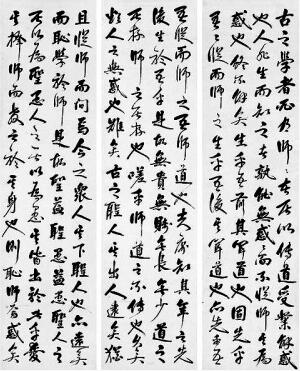 古之學者必有師師者所以傳道受業解惑
也人非生而知之者孰能無惑惑而不從師其為
惑也終不解矣生乎吾前其聞道也固先乎
吾吾從而師之生乎吾後其聞道也亦先乎吾
吾從而師之吾師道也夫庸知其年之先
後生於吾乎是故無貴無賤無長無少道之
所存師之所存也嗟乎師道之不傳也久矣
欲人之無惑也難矣古之聖人其出人也遠矣猶
且從師而問焉今之眾人其下聖人也亦遠矣
而恥學於師是故聖益聖愚益愚聖人之
所以為聖愚人之所以為愚其皆出於此乎愛
其子擇師而教之於其身也則恥師焉惑矣